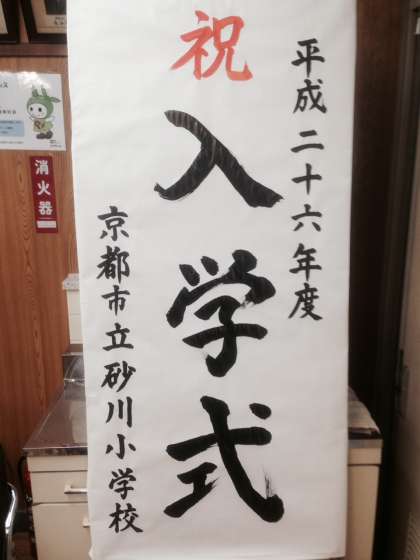 平成二十六年度
祝
入学式
京都市立砂川小学校
消火器